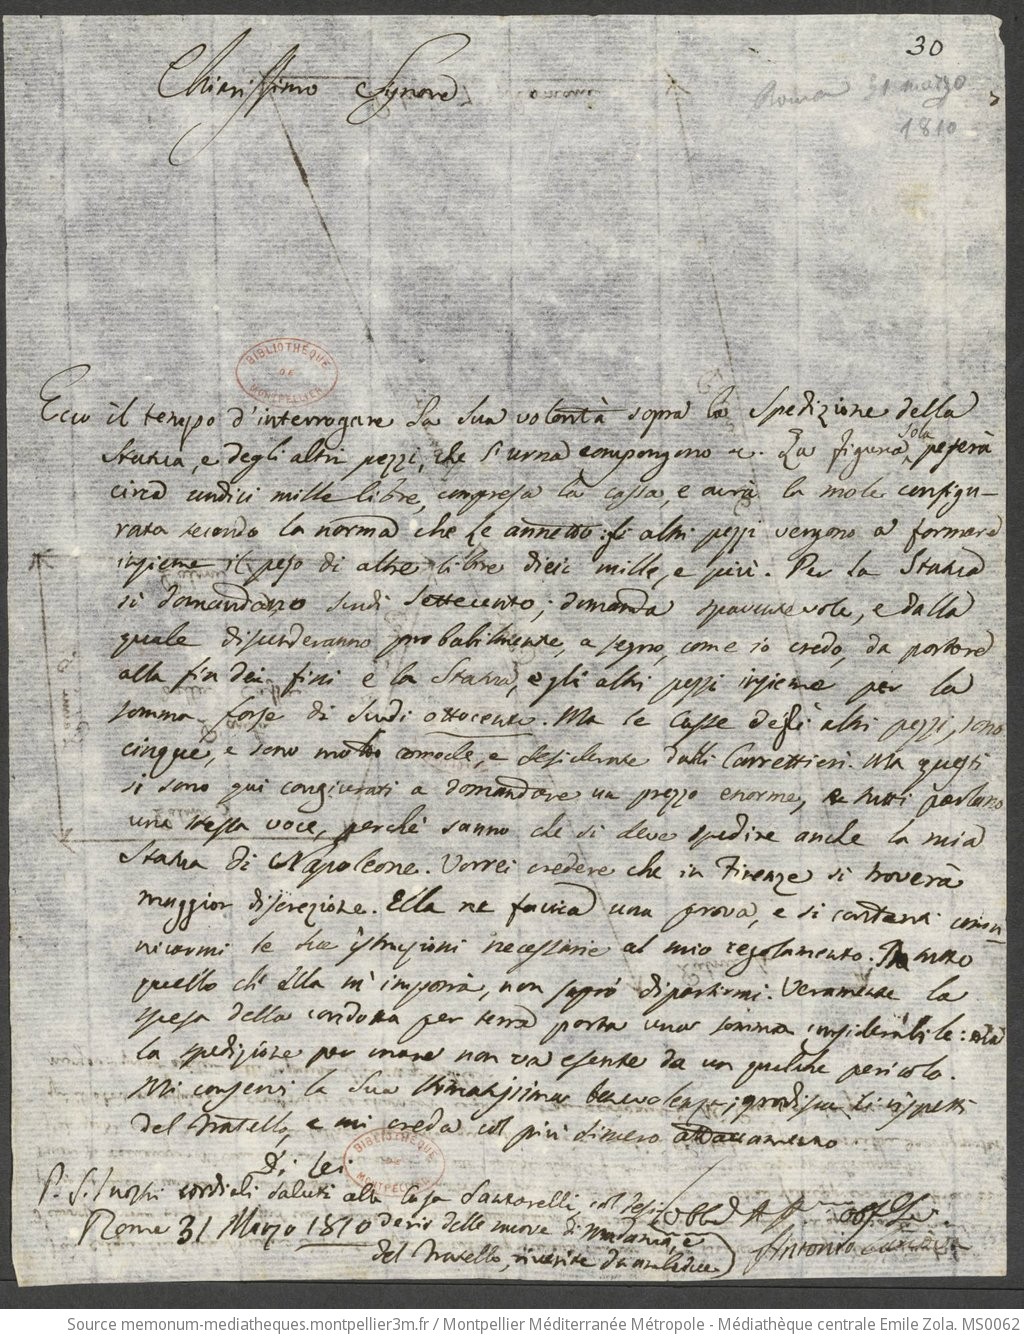 30
Chiarissimo Signore
Roma 31 marzo
1810
BIBLIOTHÈQUE DE MONTPELLIER
Ecco il tempo d'interrogare la sua volontà sopra la spedizione della
Statua, e degli altri pezzi, che l'urna compongono. La figura sola peserà
circa undici mille libre, compresa la cassa, e avrà la mole configu-
rata secondo la norma che le annetto: gli altri pezzi vengono a formare
insieme il peso di altre libre dieci mille, e più. Per la Statua
si domandano scudi settecento; domanda spaventevole, e dalla
quale discenderanno probabilmente, a segno, come io credo, da portare
alla fin dei fini e la Statua, e gli altri pezzi insieme per la
somma forse di scudi ottocento. Ma le Casse degli altri pezzi, sono
cinque, e sono molto comode, e desiderate dalli Carrettieri. Ma questi
si sono qui congiurati a domandare un prezzo enorme, e tutti parlano
una stessa voce, perchè sanno che si deve spedire anche la mia
Statua di Napoleone. Vorrei credere che in Firenze si troverà
maggior discrezione. Ella ne faccia una prova, e si contenti comu-
nicarmi le sue istruzioni necessarie al mio regolamento. Da tutto
quello ch'Ella m'imporrà, non saprò dipartirmi. Veramente la
spesa della condotta per terra porta una somma considerabile: ma
la spedizione per mare non va esente da un qualche pericolo.
Mi conservi la sua stimatissima benevolenza; gradisca li rispetti
del fratello, e mi creda col più sincero attaccamento
Di Lei
P. S. I nostri cordiali saluti alla Casa Santarelli, col desi-
derio delle nuove di Madama, e
del fratello, riverite da ambedue)
Roma 31 Marzo 1810
Antonio
BIBLIOTHÈQUE DE MONTPELLIER
Source memonum-mediatheques.montpellier3m.fr / Montpellier Méditerranée Métropole - Médiathèque centrale Emile Zola. MS0062